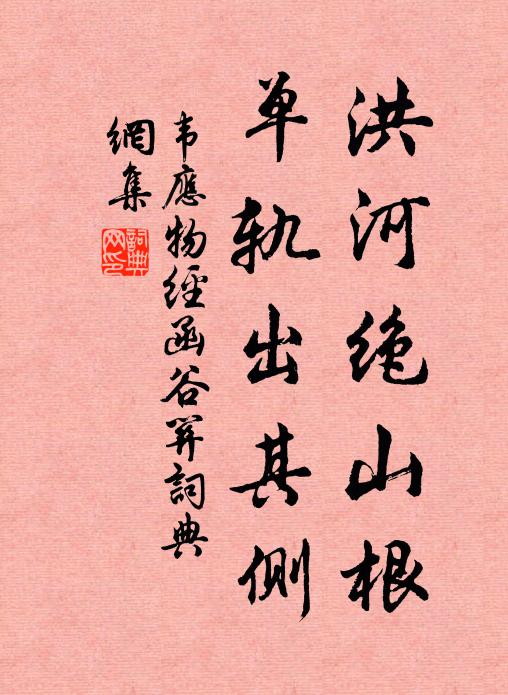 洪河绝山根
单轨出其侧
韦應物經函谷関詞典
網集
詞典
网印